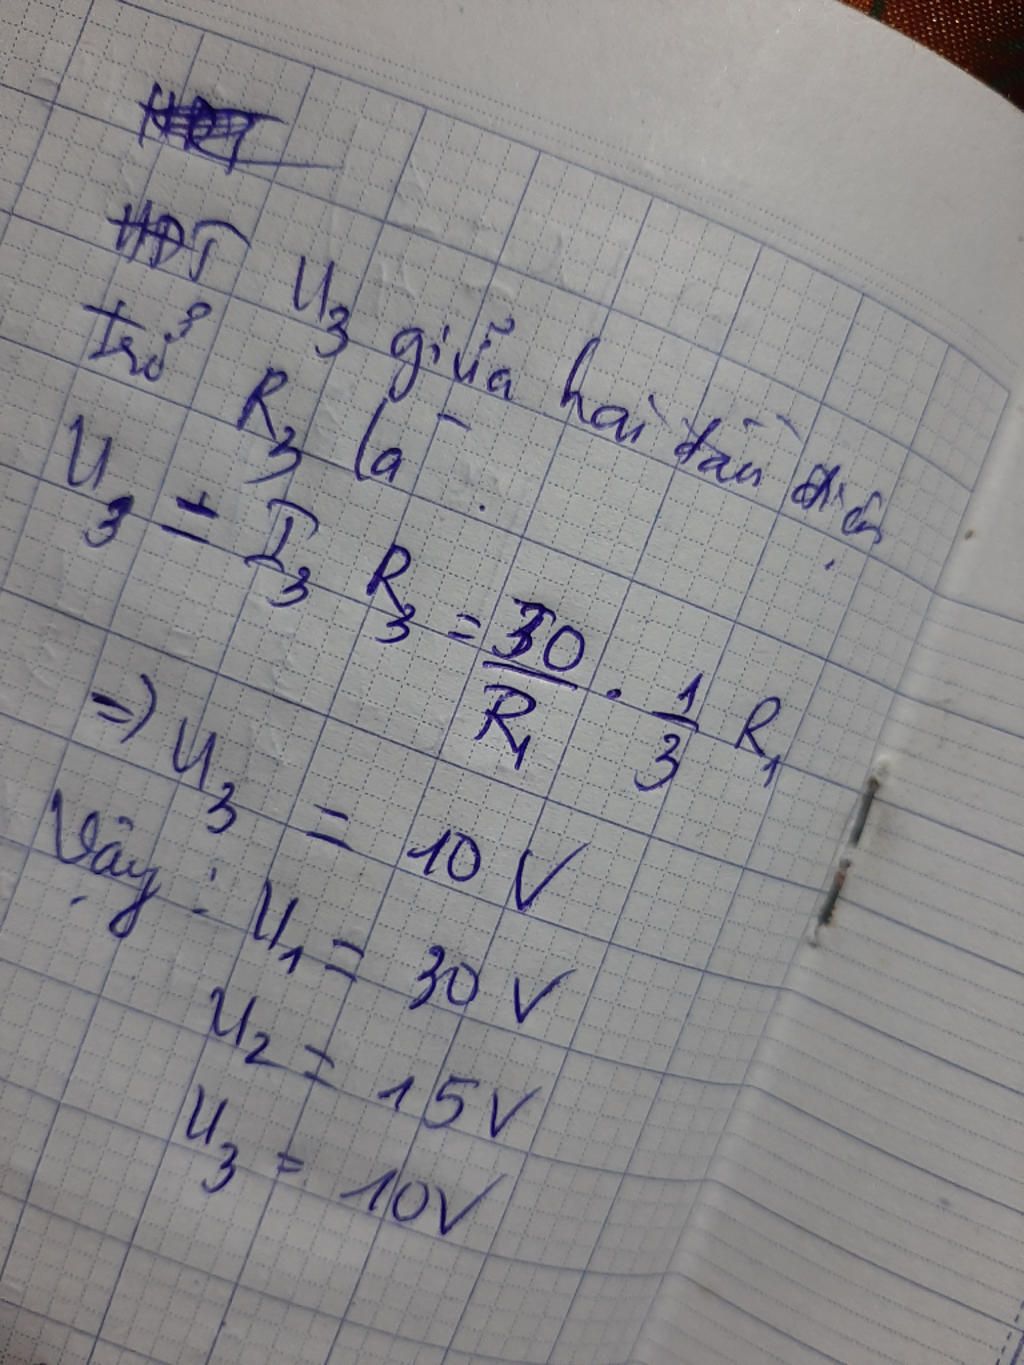 HĐT U₃ giữa hai đầu điện
trở R₃ là
U₃ = I₃ R₃ = 30/R₁ . 1/3 R₁
=> U₃ = 10 V
Vậy : U₁ = 30 V
U₂ = 15V
U₃ = 10V